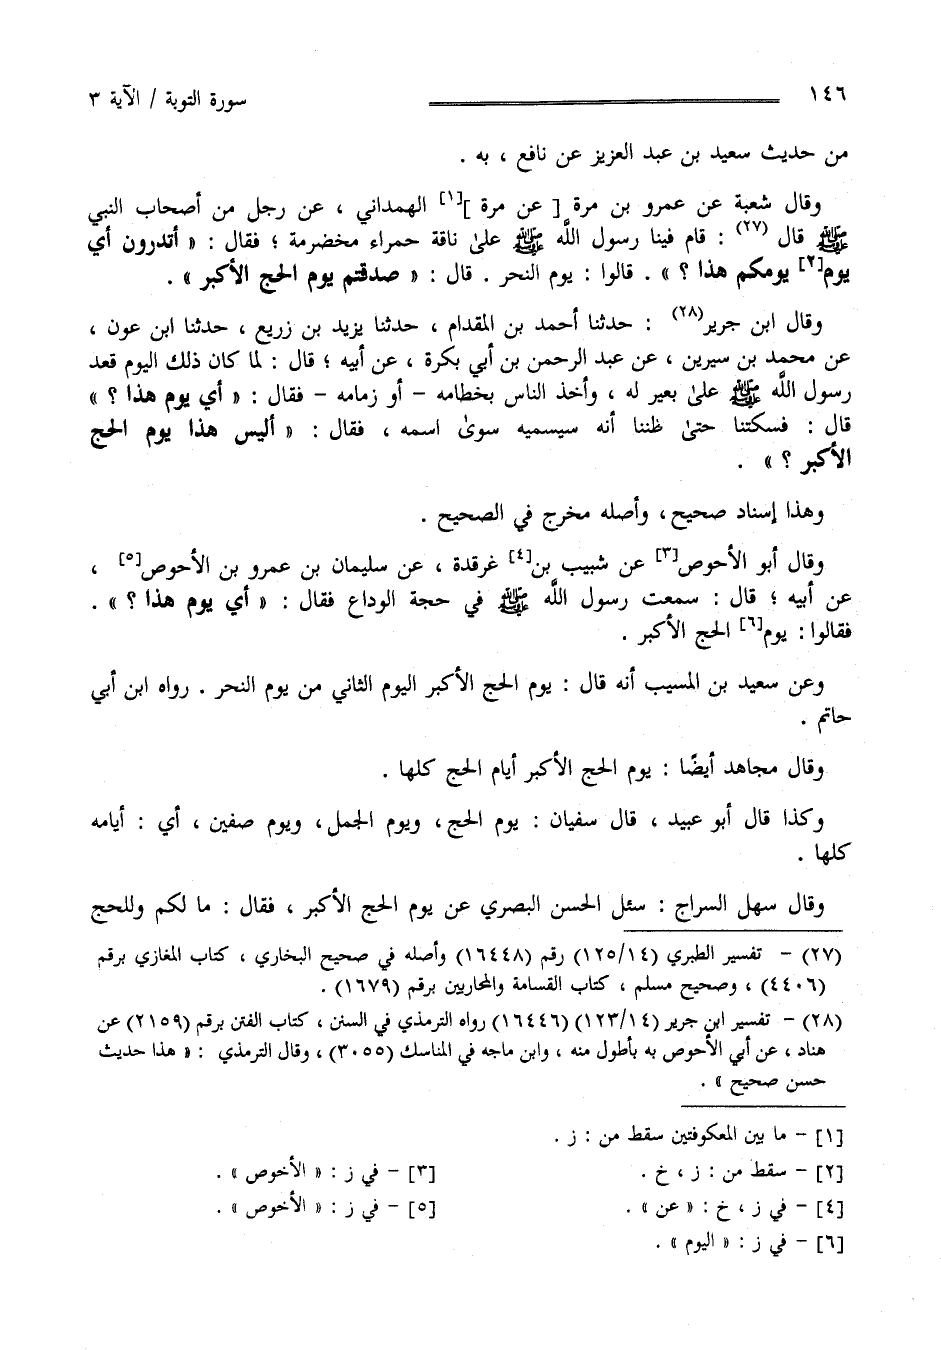 ١٤٦ سورة التوبة / الآية ٣
من حديث سعيد بن عبد العزيز عن نافع ، به .
وقال شعبة عن عمرو بن مرة [ عن مرة ][١] الهمداني ، عن رجل من أصحاب النبي
ﷺ قال (٢٧) : قام فينا رسول اللَّه ﷺ علىٰ ناقة حمراء مخضرمة ؛ فقال : « أتدرون أي
يوم[٢] يومكم هذا ؟ » . قالوا : يوم النحر . قال : « صدقتم يوم الحج الأكبر » .
وقال ابن جرير(٢٨) : حدثنا أحمد بن المقدام ، حدثنا يزيد بن زريع ، حدثنا ابن عون ،
عن محمد بن سيرين ، عن عبد الرحمن بن أبي بكرة ، عن أبيه ؛ قال : لما كان ذلك اليوم قعد
رسول اللَّه ﷺ علىٰ بعير له ، وأخذ الناس بخطامه – أو زمامه – فقال : « أي يوم هذا ؟ »
قال : فسكتنا حتىٰ ظننا أنه سيسميه سوىٰ اسمه ، فقال : « أليس هذا يوم الحج
الأكبر ؟ » .
وهذا إسناد صحيح، وأصله مخرج في الصحيح .
وقال أبو الأحوص[٣] عن شبيب بن[٤] غرقدة ، عن سليمان بن عمرو بن الأحوص[٥] ،
عن أبيه ؛ قال : سمعت رسول اللَّه ﷺ في حجة الوداع فقال : « أي يوم هذا ؟ » .
فقالوا : يوم[٦] الحج الأكبر .
وعن سعيد بن المسيب أنه قال : يوم الحج الأكبر اليوم الثاني من يوم النحر . رواه ابن أبي
حاتم .
وقال مجاهد أيضًا : يوم الحج الأكبر أيام الحج كلها .
وكذا قال أبو عبيد ، قال سفيان : يوم الحج، ويوم الجمل، ويوم صفين ، أي : أيامه
كلها .
وقال سهل السراج : سئل الحسن البصري عن يوم الحج الأكبر ، فقال : ما لكم وللحج
(٢٧) – تفسير الطبري (١٢٥/١٤) رقم (١٦٤٤٨) وأصله في صحيح البخاري ، كتاب المغازي برقم
(٤٤٠٦) ، وصحيح مسلم ، كتاب القسامة والمحاربين برقم (١٦٧٩) .
(٢٨) – تفسير ابن جرير (١٢٣/١٤) (١٦٤٤٦) رواه الترمذي في السنن ، كتاب الفتن برقم (٢١٥٩) عن
هناد ، عن أبي الأحوص به بأطول منه ، وابن ماجه في المناسك (٣٠٥٥) ، وقال الترمذي : « هذا حديث
حسن صحيح » .
[١] – ما بين المعكوفتين سقط من : ز .
[٢] – سقط من : ز ، خ . [٣] – في ز : « الأخوص » .
[٤] – في ز ، خ : « عن » . [٥] – في ز : « الأخوص » .
[٦] – في ز : « اليوم » .